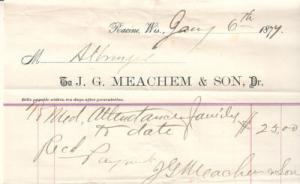 Racine, Wis., Jany 6th 1879
M
To J. G. MEACHEM & SON, Dr.
Bills payable within ten days after presentation.
To Med. Attendance family $ 25.00
to date
Rec'd Paymt
J G Meachem & Son